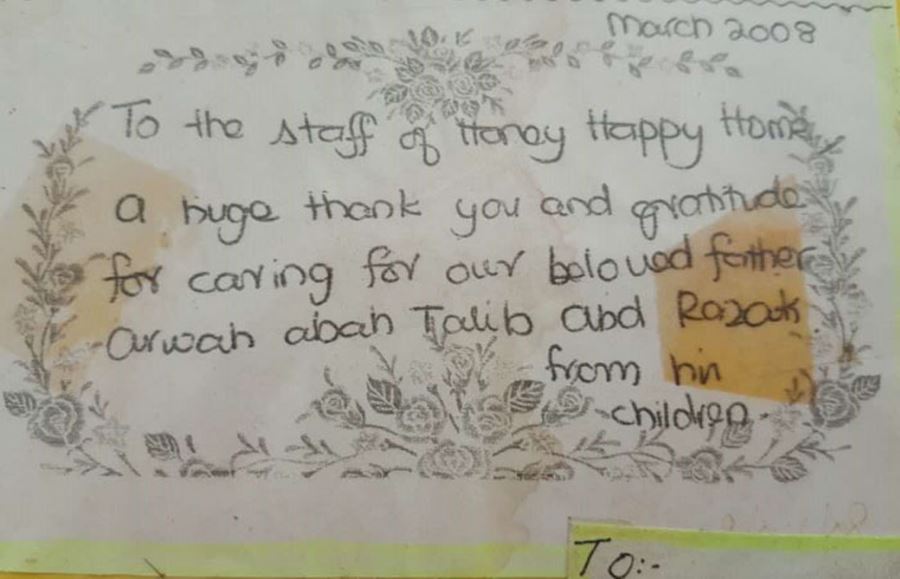 March 2008
To the staff of Honey Happy Home
a huge thank you and gratitude
for caring for our beloved father
arwah abah Talib abd Razak
from his
children.
TO:-